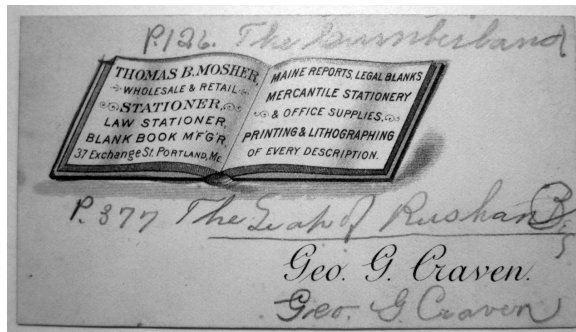 P.126. The Cumberland
THOMAS B. MOSHER,
WHOLESALE & RETAIL
STATIONER,
LAW STATIONER,
BLANK BOOK M'F'G'R,
37 Exchange St. PORTLAND, ME.
MAINE REPORTS, LEGAL BLANKS
MERCANTILE STATIONERY
& OFFICE SUPPLIES,
PRINTING & LITHOGRAPHING
OF EVERY DESCRIPTION.
P. 377 The Leap of Rushan
Geo. G. Craven.
Geo. G Craven